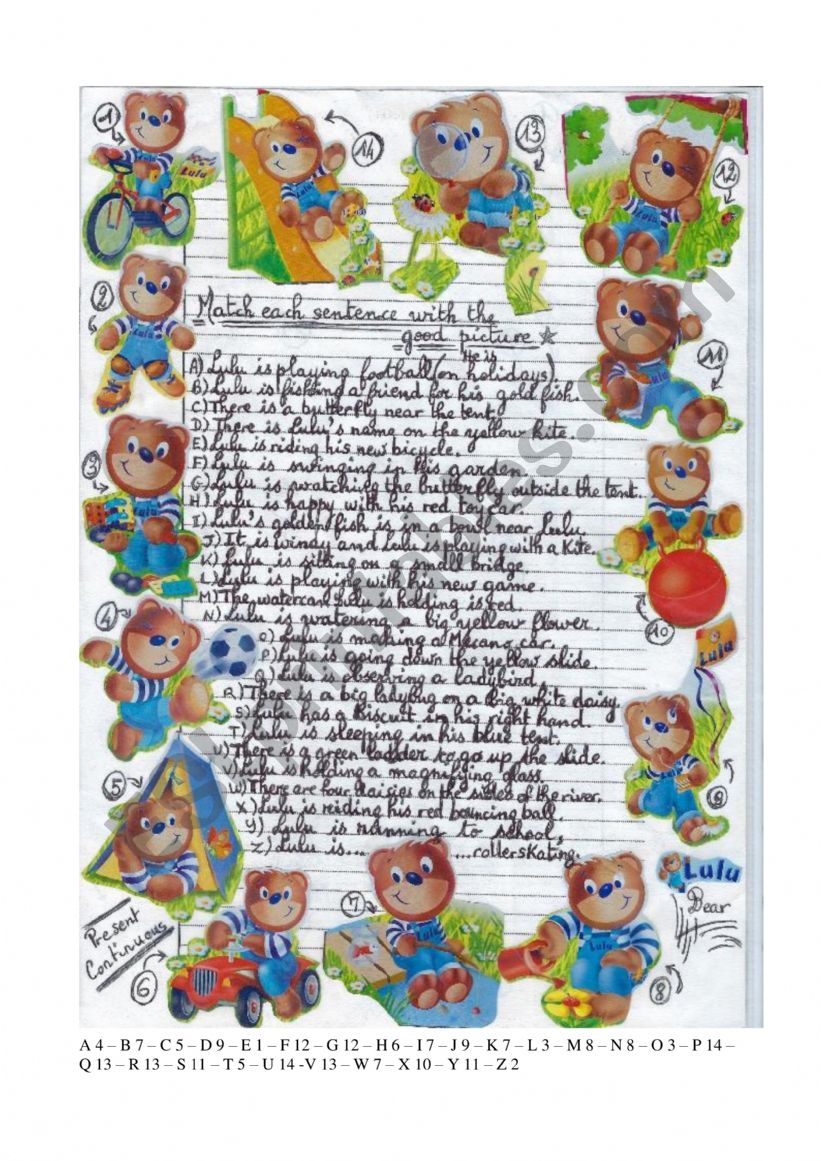 1
14
13
12
Lulu
2
Match each sentence with the
good picture
11
He is
A) Lulu is playing football (on holidays)
B) Lulu is fishing a friend for his gold fish.
C) There is a butterfly near the tent.
D) There is Lulu's name on the yellow kite.
E) Lulu is riding his new bicycle.
F) Lulu is swinging in his garden.
G) Lulu is watching the butterfly outside the tent.
H) Lulu is happy with his red toy car.
I) Lulu's golden fish is in a bowl near Lulu.
J) It is windy and Lulu is playing with a Kite.
K) Lulu is sitting on a small bridge.
L) Lulu is playing with his new game.
M) The watercan Lulu is holding is red.
N) Lulu is watering a big yellow flower.
O) Lulu is making a Mecano car.
P) Lulu is going down the yellow slide.
Q) Lulu is observing a ladybird
R) There is a big ladybug on a big white daisy.
S) Lulu has a Biscuit in his right hand.
T) Lulu is sleeping in his blue tent.
U) There is a green ladder to go up the slide.
V) Lulu is holding a magnifying glass.
W) There are four daisies on the sides of the river.
X) Lulu is riding his red bouncing ball.
Y) Lulu is running to school.
Z) Lulu is... ...rollerskating.
3
10
4
Lulu
5
9
Lulu
Dear
Present
Continuous
7
6
8
A 4 – B 7 – C 5 – D 9 – E 1 – F 12 – G 12 – H 6 – I 7 – J 9 – K 7 – L 3 – M 8 – N 8 – O 3 – P 14 –
Q 13 – R 13 – S 11 – T 5 – U 14 -V 13 – W 7 – X 10 – Y 11 – Z 2